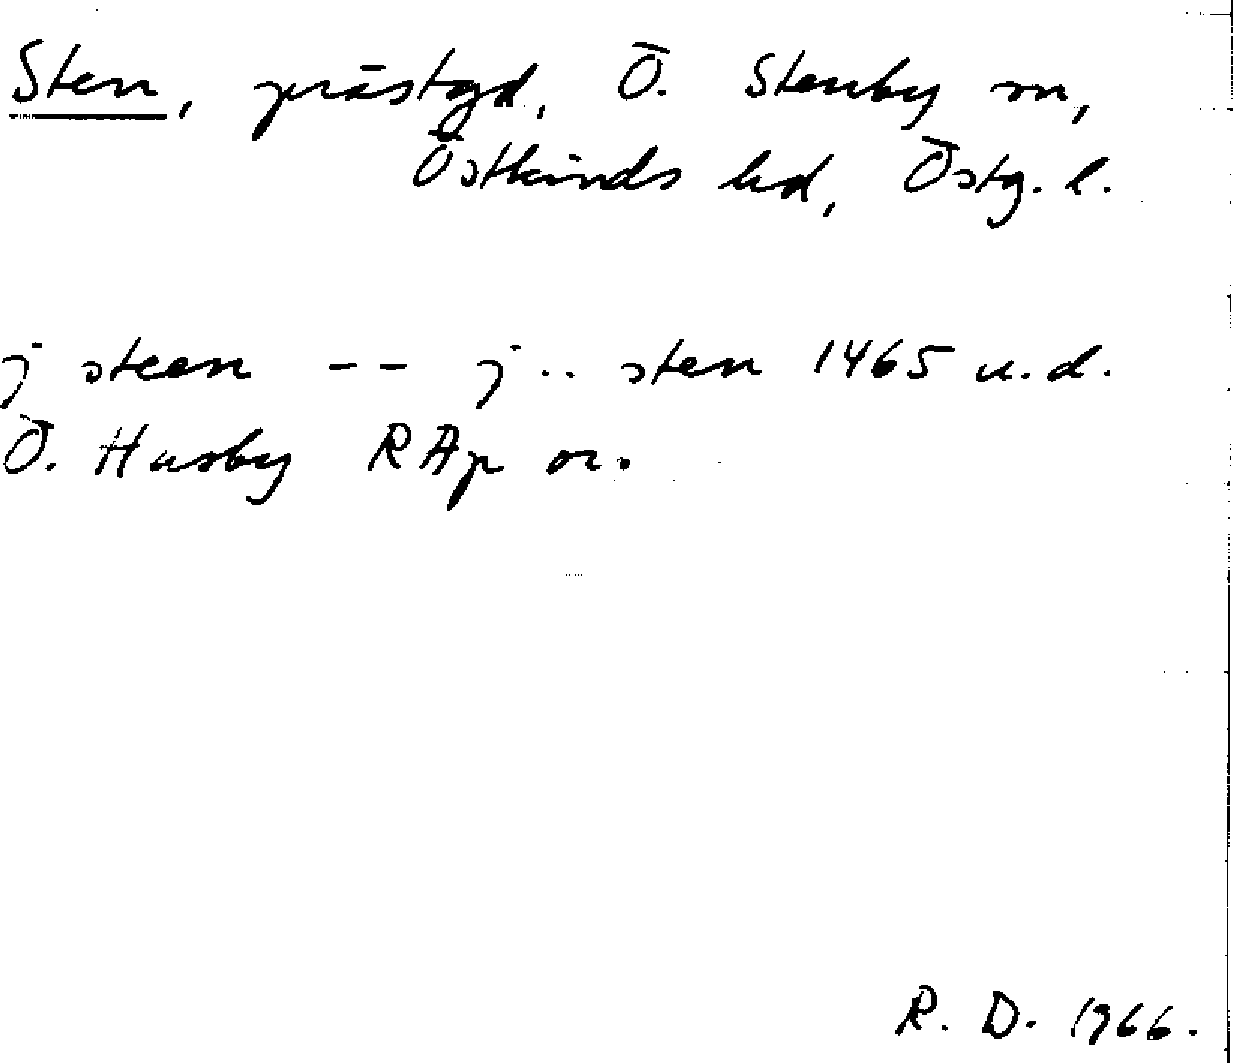 Sten, prästgd, Ö. Stenby sn,
Östkinds hd, Östg. l.
j steen -- j .. sten 1465 u.d.
Ö. Husby RAp or.
R. D. 1966.